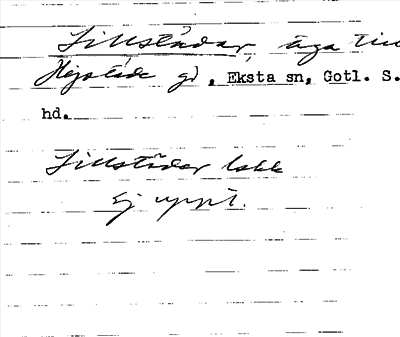 Lillstädar, äga till
Hägstäde gd, Eksta sn, Gotl. S.
hd.
Lillstädar lokk
Ej uppt.